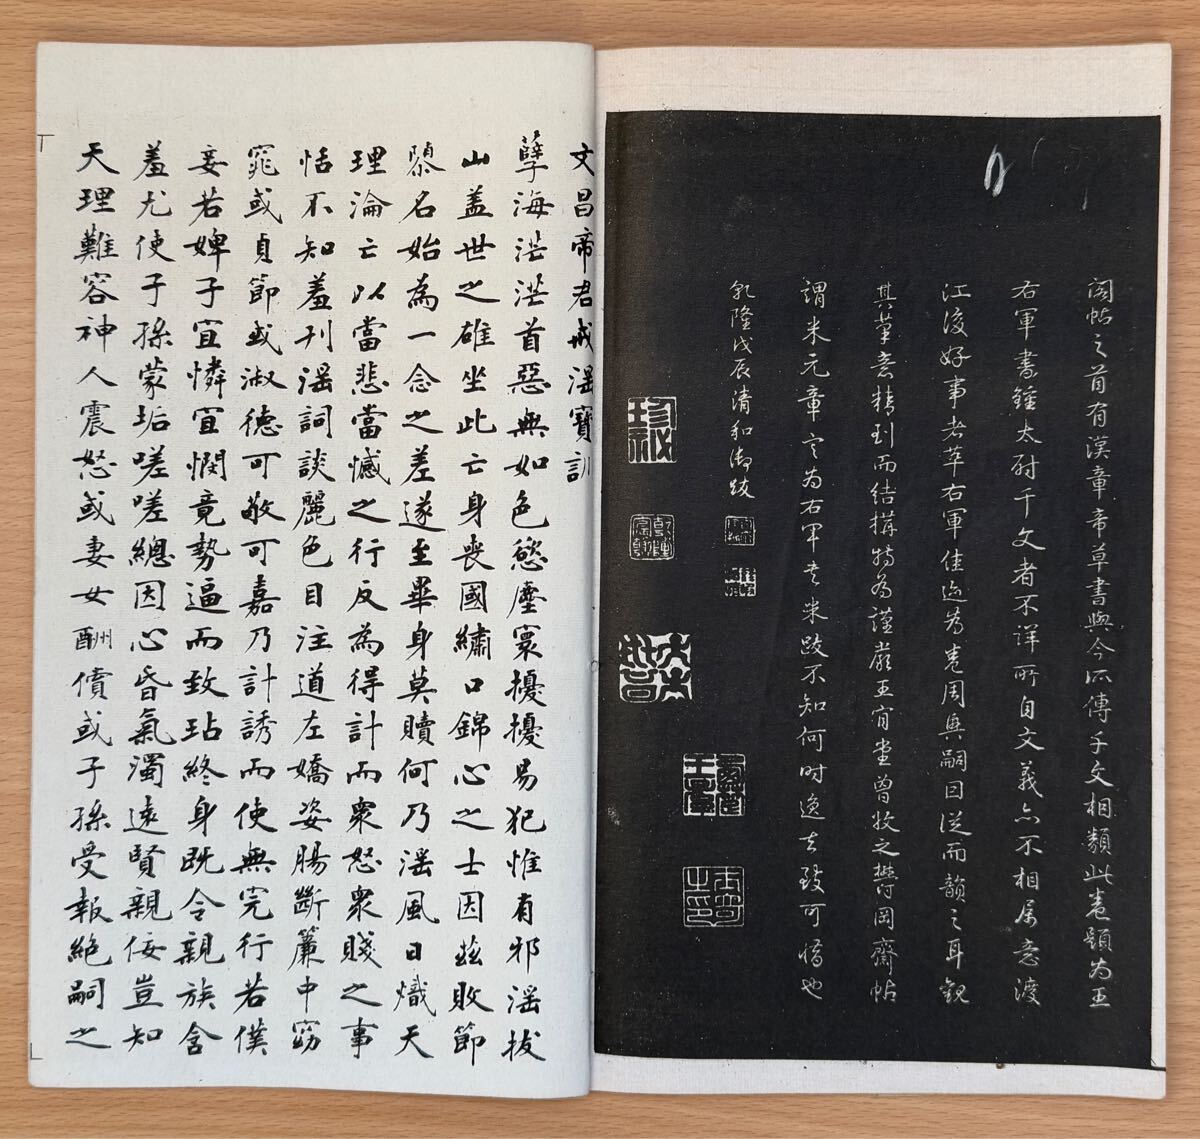 閣帖之首有漢章帝草書與今所傳千文相類此卷題為王
右軍書鍾太尉千文者不詳所自文義亦不相屬意渡
江後好事者萃右軍佳迹為卷周興嗣因從而韻之耳觀
其筆意精到而結構特為謹嚴王肯堂曾收之鬱岡齋帖
謂米元章定為右軍書米跋不知何時逸去致可惜也
乾隆戊辰清和御跋
乾隆宸翰
文昌帝君戒淫寶訓
孽海茫茫首惡無如色慾塵寰擾擾易犯惟有邪淫拔
山蓋世之雄坐此亡身喪國繡口錦心之士因茲敗節
隳名始為一念之差遂至畢身莫贖何乃淫風日熾天
理淪亡以當悲當憾之行反為得計而衆怒衆賤之事
恬不知羞刊淫詞談麗色目注道左嬌姿腸斷簾中窈
窕或貞節或淑德可敬可嘉乃計誘而使無完行若僕
妾若婢子宜憐宜憫竟勢逼而致玷終身既令親族含
羞尤使子孫蒙垢嗟嗟總因心昏氣濁遠賢親佞豈知
天理難容神人震怒或妻女酬償或子孫受報絶嗣之